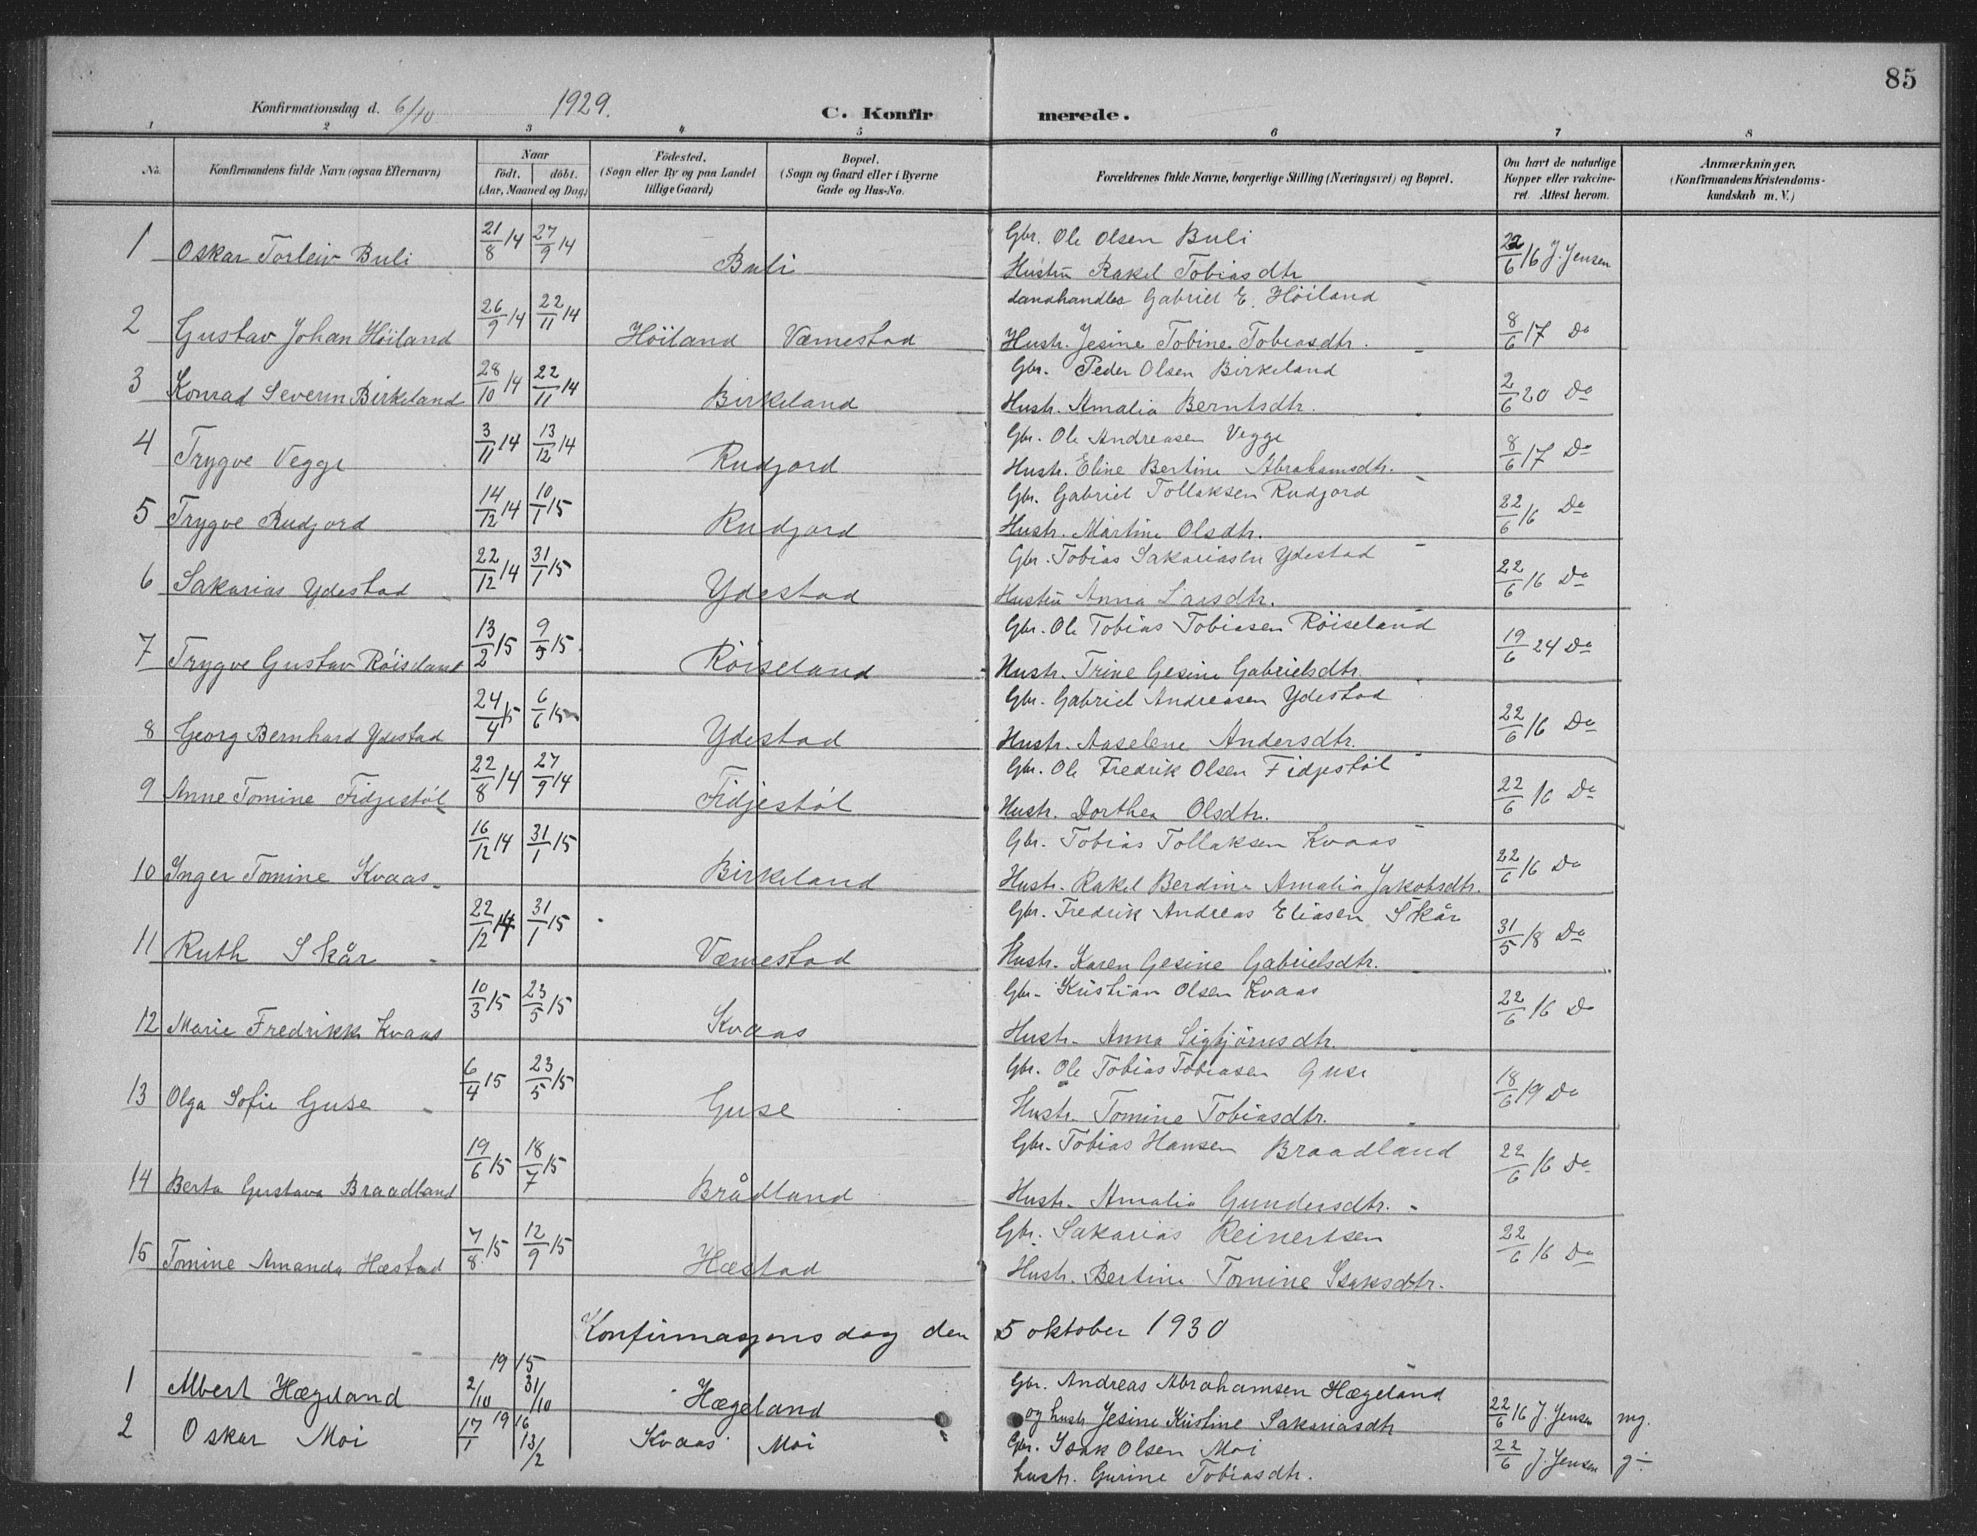 85
Konfirmationsdag d. 6/10 1929. C. Konfirmerede.
1 2 3 4 5 6 7 8
No. Konfirmandens fulde Navn (ogsaa Efternavn) Naar født. døbt. (Aar, Maaned og Dag) Fødested. (Sogn eller By og paa Landet tillige Gaard) Bopæl. (Sogn og Gaard eller i Byerne Gade og Hus-No. Forældrenes fulde Navne, borgerlige Stilling (Næringsvei) og Bopæl. Om havt de naturlige Kopper eller vakcineret. Attest herom. Anmærkninger. (Konfirmandens Kristendomskundskab m. V.)
1 Oskar Torleiv Buli 21/8 14 27/9 14 Buli Gbr. Ole Olsen Buli 22/6 16 J. Jensen
Hustru Rakel Tobiasdtr
2 Gustav Johan Höiland 26/9 14 22/11 14 Höiland Værnestad Landhandler Gabriel E. Höiland 8/6 17 Do
Hustr. Jesine Tobine Tobiasdtr.
3 Konrad Severin Birkeland 28/10 14 22/11 14 Birkeland Gbr. Peder Olsen Birkeland 2/6 20 Do
Hustr. Amalia Berntsdtr.
4 Trygve Vegge 3/11 14 13/12 14 Rudjord Gbr. Ole Andreasen Vegge 8/6 17 Do
Hustr. Eline Bertine Abrahamsdtr.
5 Trygve Rudjord 14/12 14 10/1 15 Rudjord Gbr. Gabriel Tollaksen Rudjord 22/6 16 Do
Hustr. Martine Olsdtr.
6 Sakarias Ydestad 22/12 14 31/1 15 Ydestad Gbr. Tobias Sakariasen Ydestad 22/6 16 Do
Hustru Anna Larsdtr.
7 Trygve Gustav Röiseland 13/2 15 9/5 15 Röiseland Gbr. Ole Tobias Tobiasen Röiseland 19/6 24 Do
Hustr. Trine Gesine Gabrielsdtr.
8 Georg Bernhard Ydestad 24/4 15 6/6 15 Ydestad Gbr. Gabriel Andreasen Ydestad 22/6 16 Do
Hustr. Aaselene Andersdtr.
9 Anne Tomine Fidjestöl 22/8 14 27/9 14 Fidjestöl Gbr. Ole Fredrik Olsen Fidjestöl 22/6 16 Do
Hustr. Dorthea Olsdtr.
10 Inger Tomine Kvaas 16/12 14 31/1 15 Birkeland Gbr. Tobias Tollaksen Kvaas 22/6 16 Do
Hustr. Rakel Berdine Amalia Jakobsdtr.
11 Ruth Skår 22/12 14 31/1 15 Værnestad Gbr. Fredrik Andreas Eliasen Skår 31/5 18 Do
Hustr. Karen Gesine Gabrielsdtr.
12 Marie Fredrikke Kvaas 10/3 15 23/5 15 Kvaas Gbr. Kristian Olsen Kvaas 22/6 16 Do
Hustr. Anna Sigbjörnsdtr.
13 Olga Sofie Guse 6/4 15 23/5 15 Guse Gbr. Ole Tobias Tobiasen Guse 18/6 19 Do
Hustr. Tomine Tobiasdtr.
14 Berta Gustava Braadland 19/6 15 18/7 15 Brådland Gbr. Tobias Hansen Braadland 22/6 16 Do
Hustr. Amalia Gundersdtr.
15 Tomine Amanda Hæstad 7/8 15 12/9 15 Hæstad Gbr. Sakarias Reinertsen 22/6 16 Do
Hustr. Bertine Tomine Isaksdtr.
Konfirmasjonsdag den 5 oktober 1930
19 15
1 Albert Hægeland 2/10 31/10 Hægeland Gbr. Andreas Abrahamsen Hægeland
og hustr Jesine Kristine Sakariasdtr 22/6 16 J. Jensen mg.
19 16
2 Oskar Moi 17/1 13/2 Kvaas Moi Gbr. Isak Olsen Moi 22/6 J. Jensen g÷
hustr. Gurine Tobiasdtr.